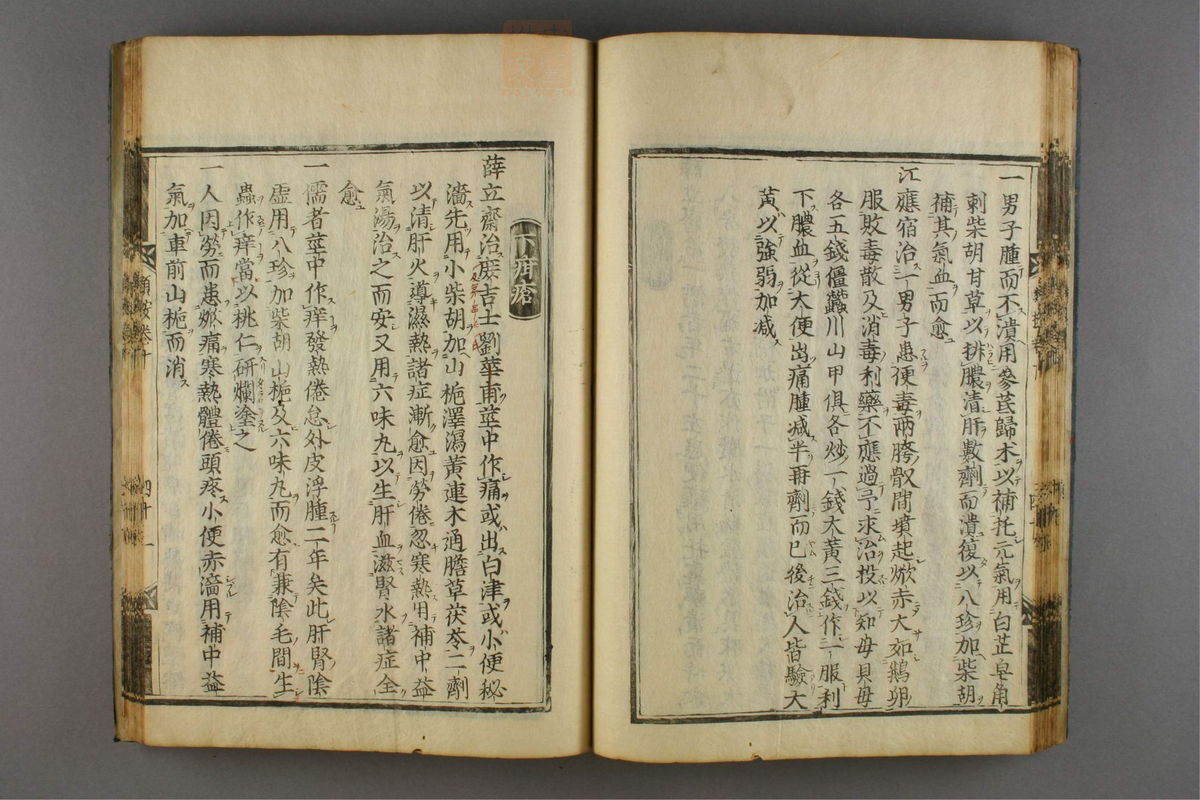 一男子腫而不潰用參芪歸朮以補托元氣用白芷皂角
刺柴胡甘草以排膿清肝數劑而潰復以八珍加柴胡
補其氣血而愈
江應宿治一男子患便毒兩胯骰間墳起焮赤大如鵝卵
服敗毒散及消毒利藥不應過予求治投以知母貝母
各五錢僵蠶川山甲俱各炒一錢大黃三錢作一服利
下膿血從大便出痛腫减半再劑而已後治人皆驗大
黃以強弱加减
下疳瘡
薛立齋治庶吉士劉華甫莖中作痛或出白津或小便秘
濇先用小柴胡加山梔澤瀉黃連木通膽草茯苓二劑
以清肝火導濕熱諸症漸愈因勞倦忽寒熱用補中益
氣湯治之而安又用六味丸以生肝血滋腎水諸症全
愈
一儒者莖中作痒發熱倦怠外皮浮腫二年矣此肝腎陰
虛用八珍加柴胡山梔及六味丸而愈有兼陰毛間生
蟲作痒當以桃仁研爛塗之
一人因勞而患焮痛寒熱體倦頭疼小便赤濇用補中益
氣加車前山梔而消
類案卷十
四十一